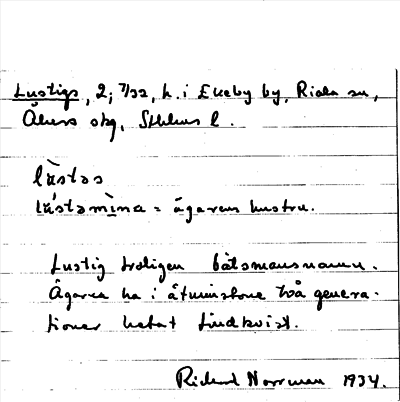 Lustigs, 2; 7/22, h. i Ekeby by, Riala sn,
Åkers skg, Sthlms l.
lùstəs
lùstəmìna = ägarens hustru.
Lustig troligen båtsmansnamn.
Ägarna ha i åtminstone två genera-
tioner hetat Lindkvist.
Rickard Norrman 1934.